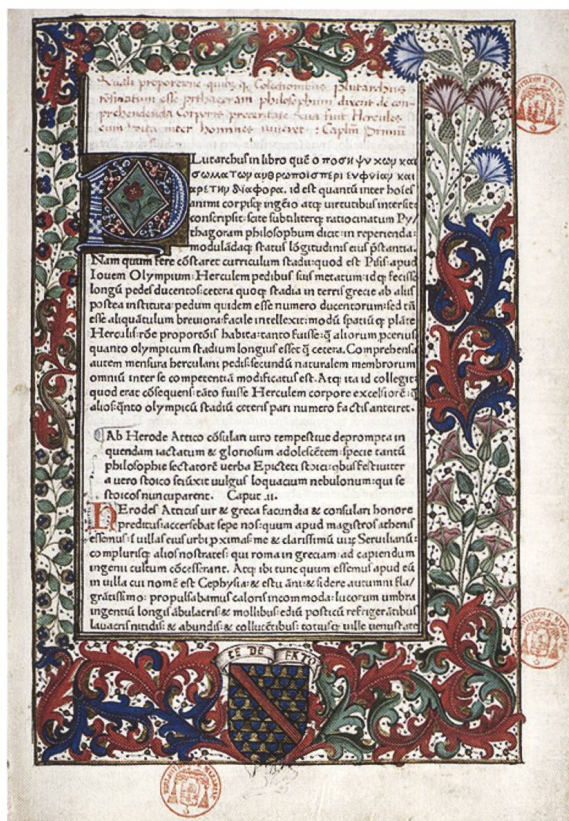 Quali proportione quibusq; Collectionibus Plutarchus
ratiocinatum esse pythagoram philosophum dixerit de com-
prehendenda Corporis proceritate Qua fuit Hercules
cum vita inter homines viueret : Caplm Primũ
PLutarchus in libro quẽ ο ποση ψν χων και
σωματων ανθρωποις περι ενφνιαν και
αρετην διαφορα. id est quantũ inter hoĩes
animi corpisq; ingẽio atq; uirtutibus intersit
conscripsit: scite subtiliterq; ratiocinatum Py/
thagoram philosophum dicit: in reperienda:
modulãdaq; status lõgitudinis eius p̃stantia.
Nam quum fere cõstaret curriculum stadii: quod est Pisis apud
Iouem Olympium: Herculem pedibus suis metatum: idq; fecisse
longũ pedes ducentos: cetera quoq; stadia in terris grecie ab aliis
postea instituta: pedum quidem esse numero ducentorum: sed tñ
esse aliquãtulum breuiora: facile intellexit: modũ spatiũ q; plãte
Herculis: rõe proportõis habita: tanto fuisse: q̃ aliorum pcerius
quanto olympicum stadium longius esset q̃ cetera. Comprehensa
autem mensura herculani pedis: secundũ naturalem membrorum
omniũ inter se competentiã modificatus est. Atq; ita id collegit:
quod erat cõsequens: tãto fuisse Herculem corpore excelsiorẽ: q̃
alios: q̃nto olympicũ stadiũ ceteris pari numero factis anteiret.
Ab Herode Attico cõsulari uiro tempestiue deprompta in
quendam iactatum & gloriosum adolescẽtem: specie tantũ
philosophie sectatorẽ uerba Epicteti stoici: q̃bus festiuiter
a uero stoico seiũxit uulgus loquacium nebulonum: qui se
stoicos nuncuparent. Caput .ii.
HErodes Atticus uir & greca facundia & consulari honore
preditus: accersebat sepe nos: quum apud magistros athenis
essemus: ĩ uillas eius urbi pximas: me & clarissimũ uiꝝ Seruilianũ:
complurisq; alios nostrates: qui roma in greciam: ad capiendum
ingenii cultum cõcesserant. Atq; ibi tunc quum essemus apud eũ
in uilla cui nomẽ est Cephysia: & estu anĩ: & sidere autumni fla/
grãtissimo: propulsabamus caloris incommoda: lucorum umbra
ingentiũ longis ãbulacris & mollibus: ediũ posticũ refrigerãtibus
lauacris nitidis: & abundis: & collucẽtibus: totiusq; uille uenustate